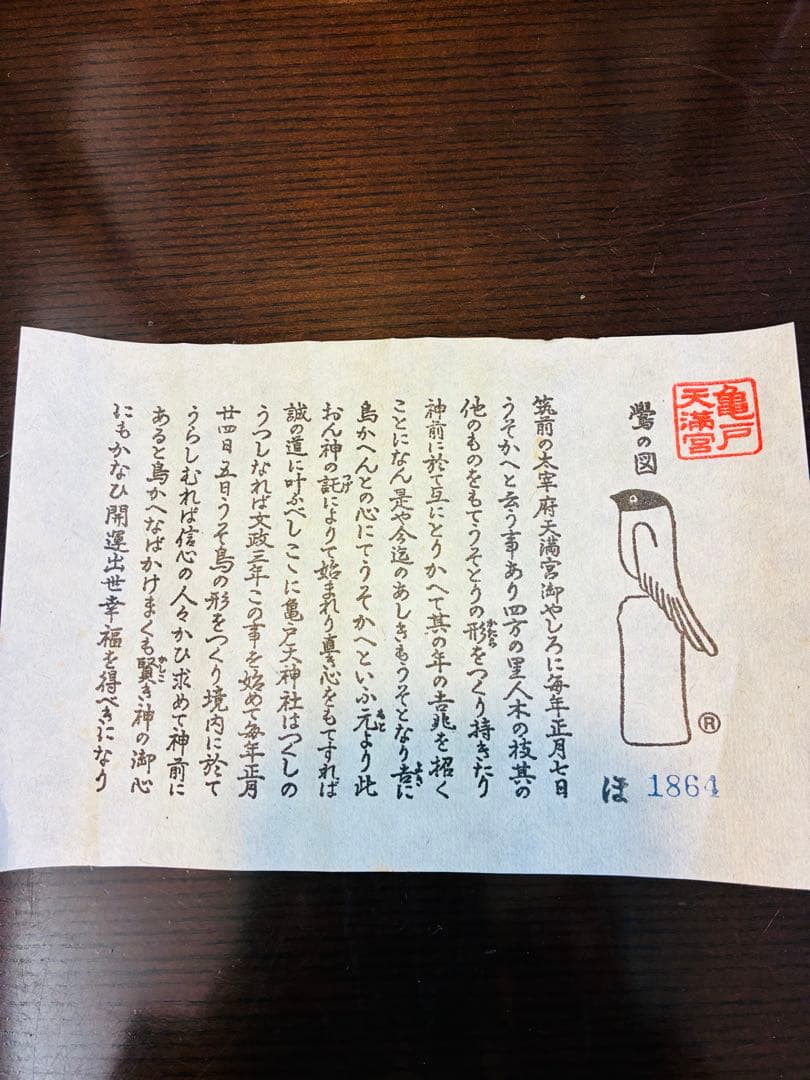 亀戸
天満宮
鷽の図
®
ほ 1864
筑前の太宰府天満宮御やしろに毎年正月七日
うそかへと云う事あり四方の里人木の枝其の
他のものをもてうそどりの形をつくり持きたり
神前に於て互にとりかへて其の年の吉兆を招く
ことになん是や今迄のあしきもうそとなり吉に
鳥かへんとの心にてうそかへといふ元より此
おん神の託によりて始まれり直き心をもてすれば
誠の道に叶ふべしこゝに亀戸天神社はつくしの
うつしなれば文政三年この事を始めて毎年正月
廿四日五日うそ鳥の形をつくり境内に於て
うらしむれば信心の人々かひ求めて神前に
あると鳥かへなばかけまくも賢き神の御心
にもかなひ開運出世幸福を得べきになり